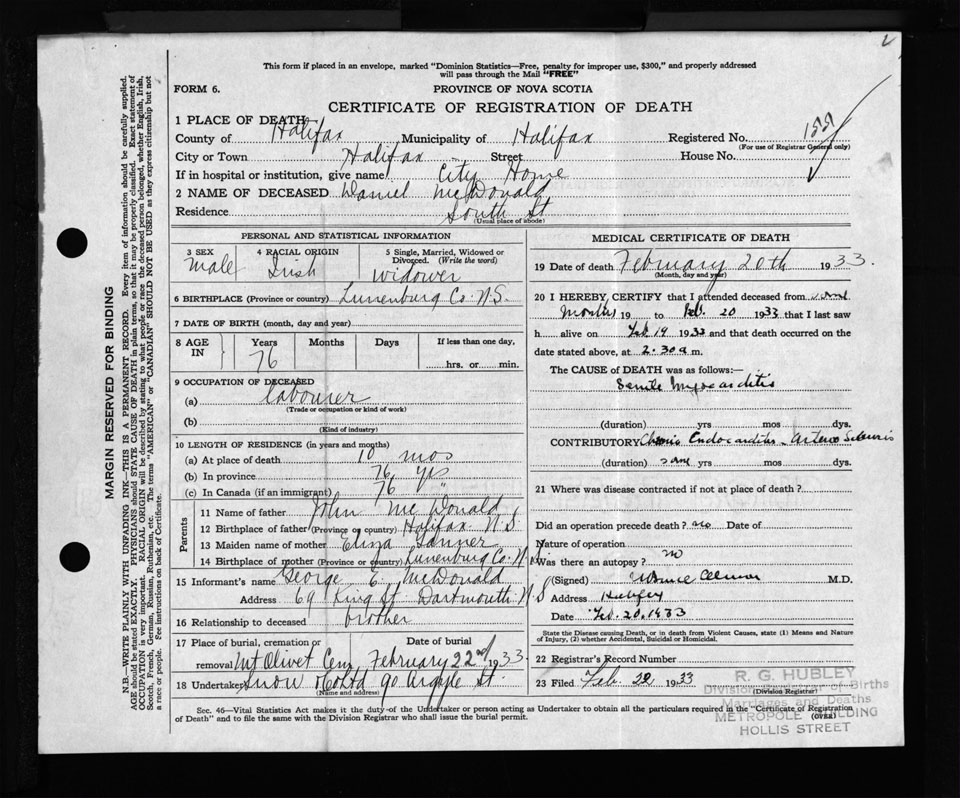 This form if placed in an envelope, marked "Dominion Statistics—Free, penalty for improper use, $300," and properly addressed
will pass through the Mail "FREE"
FORM 6.
PROVINCE OF NOVA SCOTIA
CERTIFICATE OF REGISTRATION OF DEATH
1 PLACE OF DEATH
County of Halifax Municipality of Halifax Registered No.
(For use of Registrar General only)
City or Town Halifax Street House No.
If in hospital or institution, give name City Home
2 NAME OF DECEASED Daniel McDonald
Residence South St
(Usual place of abode)
PERSONAL AND STATISTICAL INFORMATION
3 SEX Male
4 RACIAL ORIGIN Irish
5 Single, Married, Widowed or Divorced. (Write the word) widower
6 BIRTHPLACE (Province or country) Lunenburg Co. N.S.
7 DATE OF BIRTH (month, day and year)
8 AGE IN Years 76 Months Days If less than one day, hrs. or min.
9 OCCUPATION OF DECEASED
(a) Labourer
(Trade or occupation or kind of work)
(b)
(Kind of industry)
10 LENGTH OF RESIDENCE (in years and months)
(a) At place of death 10 mos
(b) In province 76 yrs
(c) In Canada (if an immigrant) 76 "
Parents
11 Name of father John McDonald
12 Birthplace of father (Province or country) Halifax N.S.
13 Maiden name of mother Eliza Lanner
14 Birthplace of mother (Province or country) Lunenburg Co. N.S.
15 Informant's name George E. McDonald
Address 69 King St. Dartmouth N.S
16 Relationship to deceased brother
17 Place of burial, cremation or Date of burial
removal Mt Olivet Cem February 22nd 1933.
18 Undertaker Snow & Co Ltd 90 Argyle St.
(Name and address)
MEDICAL CERTIFICATE OF DEATH
19 Date of death February 20th 1933.
(Month, day and year)
20 I HEREBY CERTIFY that I attended deceased from
Months 19 to Feb. 20 1933 that I last saw
h alive on Feb 19 1933 and that death occurred on
date stated above, at 2.30 a m.
The CAUSE of DEATH was as follows:—
Senile Myocarditis
(duration) yrs mos dys.
CONTRIBUTORY Chronic Endocarditis - Arterio Sclerosis
(duration) yrs mos dys.
21 Where was disease contracted if not at place of death?
Did an operation precede death? no Date of
Nature of operation
Was there an autopsy? no
(Signed) M.D.
Address Halifax
Date Feb. 20. 1933
State the Disease causing Death, or in death from Violent Causes, state (1) Means and Nature
of Injury, (2) whether Accidental, Suicidal or Homicidal.
22 Registrar's Record Number
23 Filed Feb. 22 1933
(Division Registrar)
R. G. HUBLEY
Division Registrar of Births
Marriages and Deaths
METROPOLE BUILDING
HOLLIS STREET
(OVER)
Sec. 46—Vital Statistics Act makes it the duty of the Undertaker or person acting as Undertaker to obtain all the particulars required in the "Certificate of Registration
of Death" and to file the same with the Division Registrar who shall issue the burial permit.
MARGIN RESERVED FOR BINDING
N.B.—WRITE PLAINLY WITH UNFADING INK—THIS IS A PERMANENT RECORD. Every item of information should be carefully supplied.
AGE should be stated EXACTLY. PHYSICIANS should STATE CAUSE OF DEATH in plain terms, so that it may be properly classified. Exact statement of
OCCUPATION is very important. RACIAL ORIGIN will be described by stating to what people or race the deceased person belonged, whether English, Irish,
Scotch, French, German, Russian, Ruthenian, etc. The terms "AMERICAN" or "CANADIAN" SHOULD NOT BE USED as they express citizenship but not
a race or people. See instructions on back of Certificate.